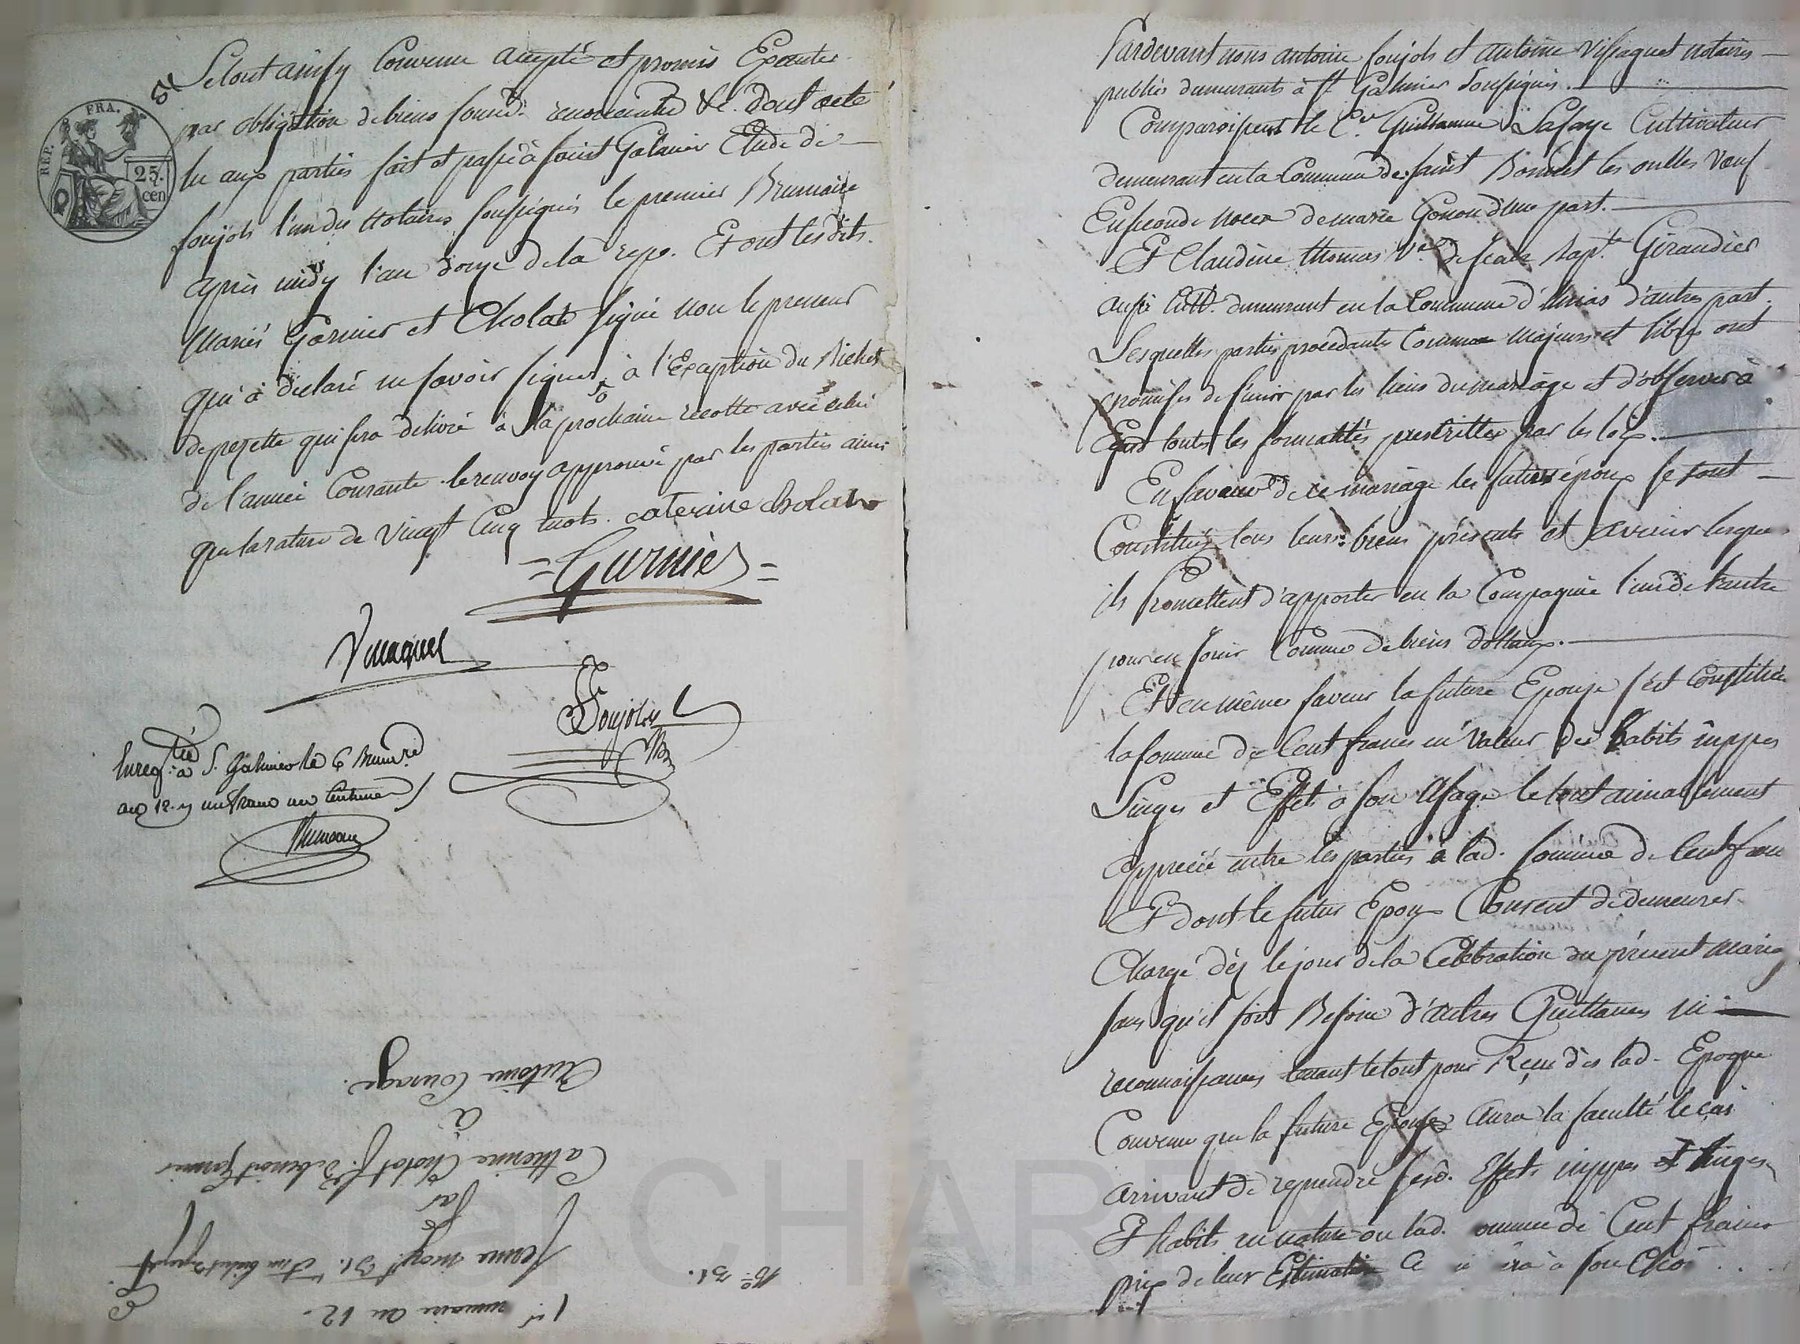 REP. FRA.
25.
cen
Le tout ainsy Convenu accepté et promis Executer
par obligation de biens soumis. renonceants &c. dont acte
lu aux parties fait et passé à saint Galmier Etude de
foujols l'un des Notaires soussignés le premier Brumaire
après midy l'an douze de la rep. Et ont lesdits
Mariés Garnier et Cholat signé non le preneur
qui a declaré ne savoir signer, à l'Exception du Bichet
de pezette qui sera delivré à la prochaine recolte avec celui
de l'année Courante. le renvoy approuvé par les parties ainsi
que la rature de Vingt Cinq mots. caterine cholat
= Garnier =
Foujols
Enreg.tré à S. Galmier le 6 Brumre
an 12. un franc un centime
1er Brumaire an 12
Par
Catherine Cholat f. de benoit Garnier
à
Antoine Courage.
Pardevant nous antoine foujols et antoine Vissaguet notaires
publics demeurants à St Galmier soussignés.
Comparoissent le C.en Guillaume Lafaye Cultivateur
demeurant en la Commune de saint Bonnet les oulles Veuf
En seconde noces de marie Gonon d'une part.
Et Claudine thomas V.e de Jean Bap.te Giraudier
aussi Cult. demeurant en la Commune d'Unias d'autre part.
Lesquelles parties procedantes Comme majeurs et libres ont
promises de s'unir par les liens du mariage et d'observer à
Cegard toutes les formalités prescrittes par les loix.
En faveur de ce mariage les futurs époux se sont
Constitués tous leurs biens présents et avenir lesquels
ils Promettent d'apporter en la Compagnie l'un de l'autre
pour en Jouir Comme de biens dottaux.
Et en même faveur la future Epouse s'est Constituée
la somme de Cent francs en Valeur des habits nippes
Linges et Effets à son Usage le tout aimablement
apprecié entre les parties à lad. somme de Cent fran
Et dont le futur Epoux Consent de demeurer
Chargé dès le jour de la Célébration du présent mariag
sans qu'il soit Besoin d'autres Quittances ni
reconnoissances tenant le tout pour Reçu dès lad. Epoque
Convenu que la future Epouse aura la faculté le cas
arrivant de reprendre sesd. Effets nippes et linges
Et habits en nature ou lad. omme de Cent francs
prix de leur Estimation Ce à son Choi